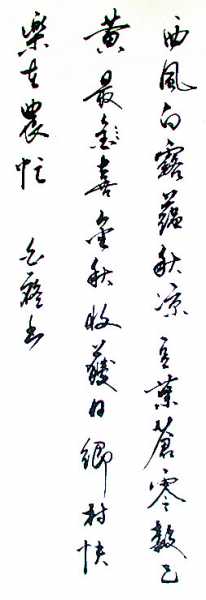 西風白露蘊秋凉豆葉蒼零穀已
黄最喜金秋收穫日鄉村快
樂在農忙
书